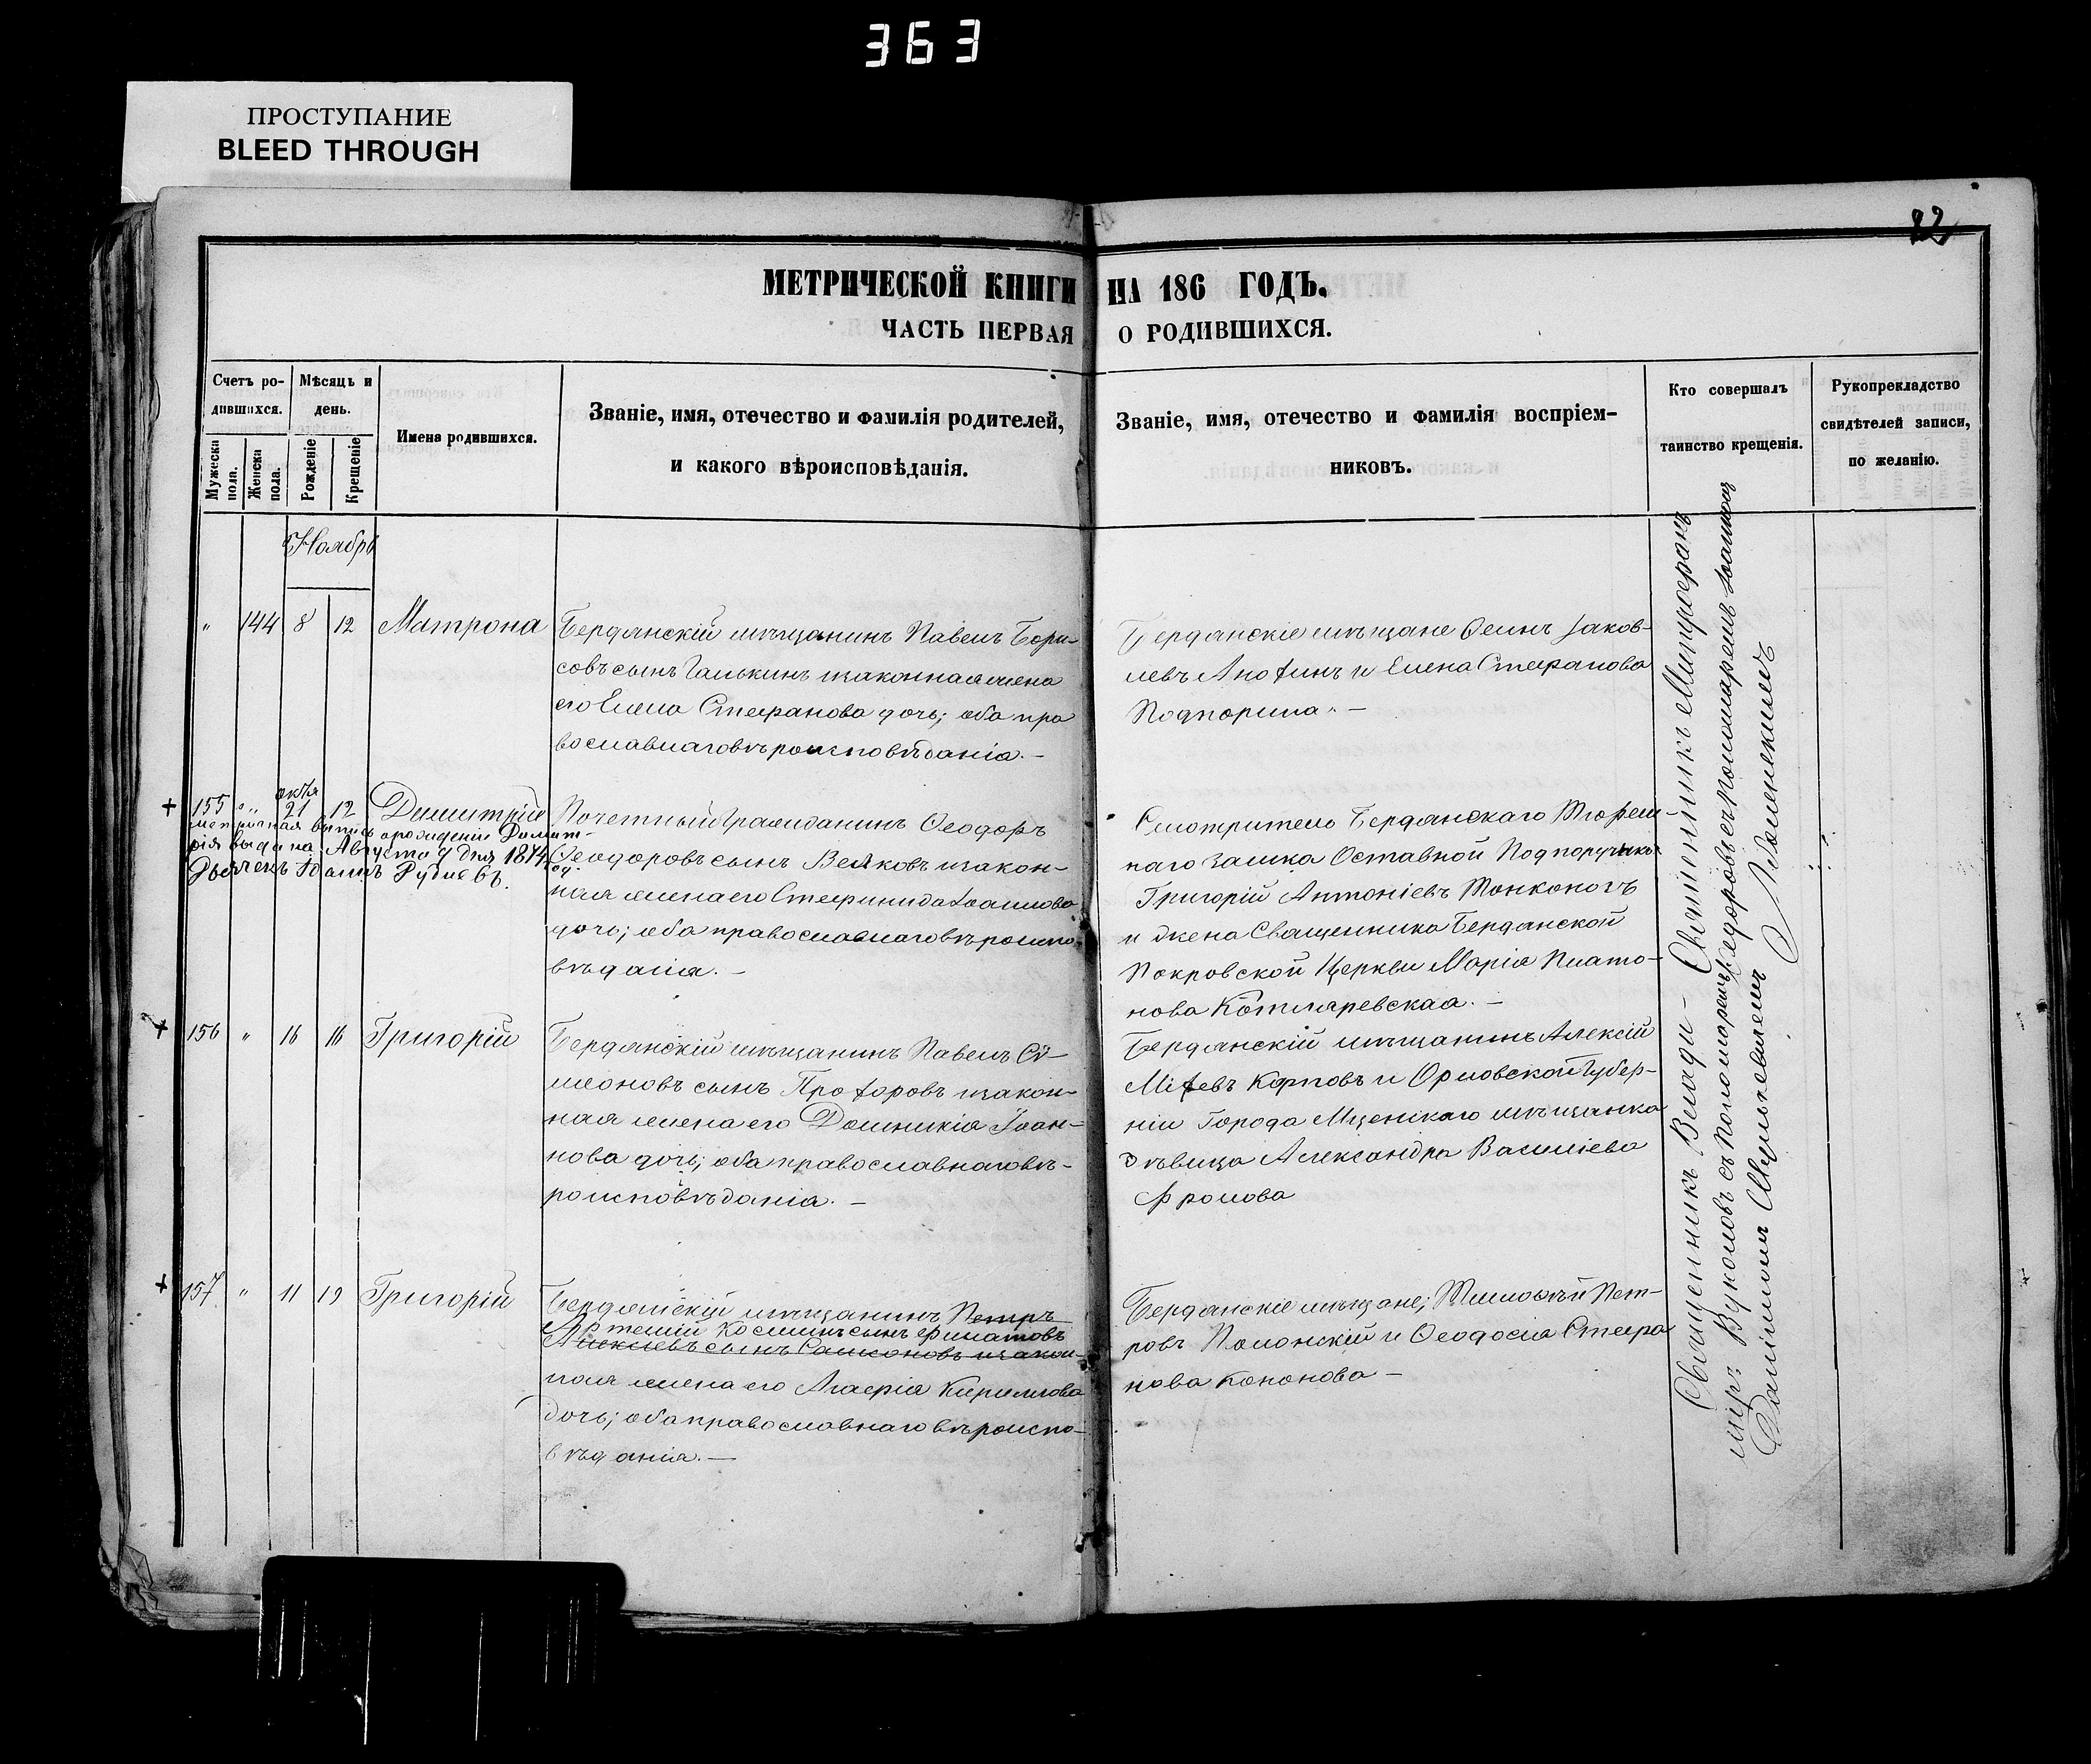 363
ПРОСТУПАНИЕ
BLEED THROUGH
22
МЕТРИЧЕСКОЙ КНИГИ НА 186 ГОДЪ.
ЧАСТЬ ПЕРВАЯ О РОДИВШИХСЯ.
Счетъ ро-
дившихся.
Мужеска пола.
Женска пола.
Мѣсяць и
день.
Рожденіе
Крещеніе
Имена родившихся.
Званіе, имя, отечество и фамилія родителей,
и какого вѣроисповѣданія.
Званіе, имя, отечество и фамилія воспріем-
никовъ.
Кто совершалъ
таинство крещенія.
Рукоприкладство
свидѣтелей записи,
по желанію.
Ноябрь
" 144 8 12 Матрона
Бердянскій мѣщанинъ Павелъ Бори-
совъ сынъ Галькинъ и законная жена
его Елена Стефанова дочь; оба пра
вославнаго вѣроисповѣданія. —
Бердянскіе мѣщане Осипъ Іаков-
левъ и Елена Стефанова
+ 155 " 21 12 Димитрій
метричная выпись о рожденіи Димит-
рія выдана Августа 9 дня 1874
год.
Почетный Гражданинъ Ѳеодоръ
Ѳеодоровъ сынъ и закон-
ная жена его Стефанида Іоаннова
дочь; оба православнаго вѣроиспо-
вѣданія. —
Смотритель Бердянскаго Тюрем-
наго замка Оставной Подпоручикъ
Григорій Антоніевъ Тонконогъ
и жена Священника Бердянской
Покровской Церкви Марія Плато-
нова Котляревская. —
+ 156 " 16 16 Григорій
Бердянскій мѣщанинъ Павелъ Сѵ-
меоновъ сынъ Прохоровъ и закон-
ная жена его Домникія Іоан-
нова дочь; оба православнаго вѣ-
роисповѣданія. —
Бердянскій мѣщанинъ Алексій
Карповъ и Орловской Губер-
ніи Города Мценскаго мѣщанка
дѣвица Александра Василіева
Фролова
+ 157 " 11 19 Григорій
Бердянскій мѣщанинъ Петръ
Артемій Косминъ сынъ Филатовъ
Алексіевъ сынъ и закон-
ная жена его Кириллова
дочь; оба православнаго вѣроиспо-
вѣданія. —
Бердянскіе мѣщане; Тимоѳей Пет-
ровъ Полонскій и Ѳеодосія Стефа
нова Кононова —
Священникъ Влади-
міръ Вуколовъ съ Пономаремъ